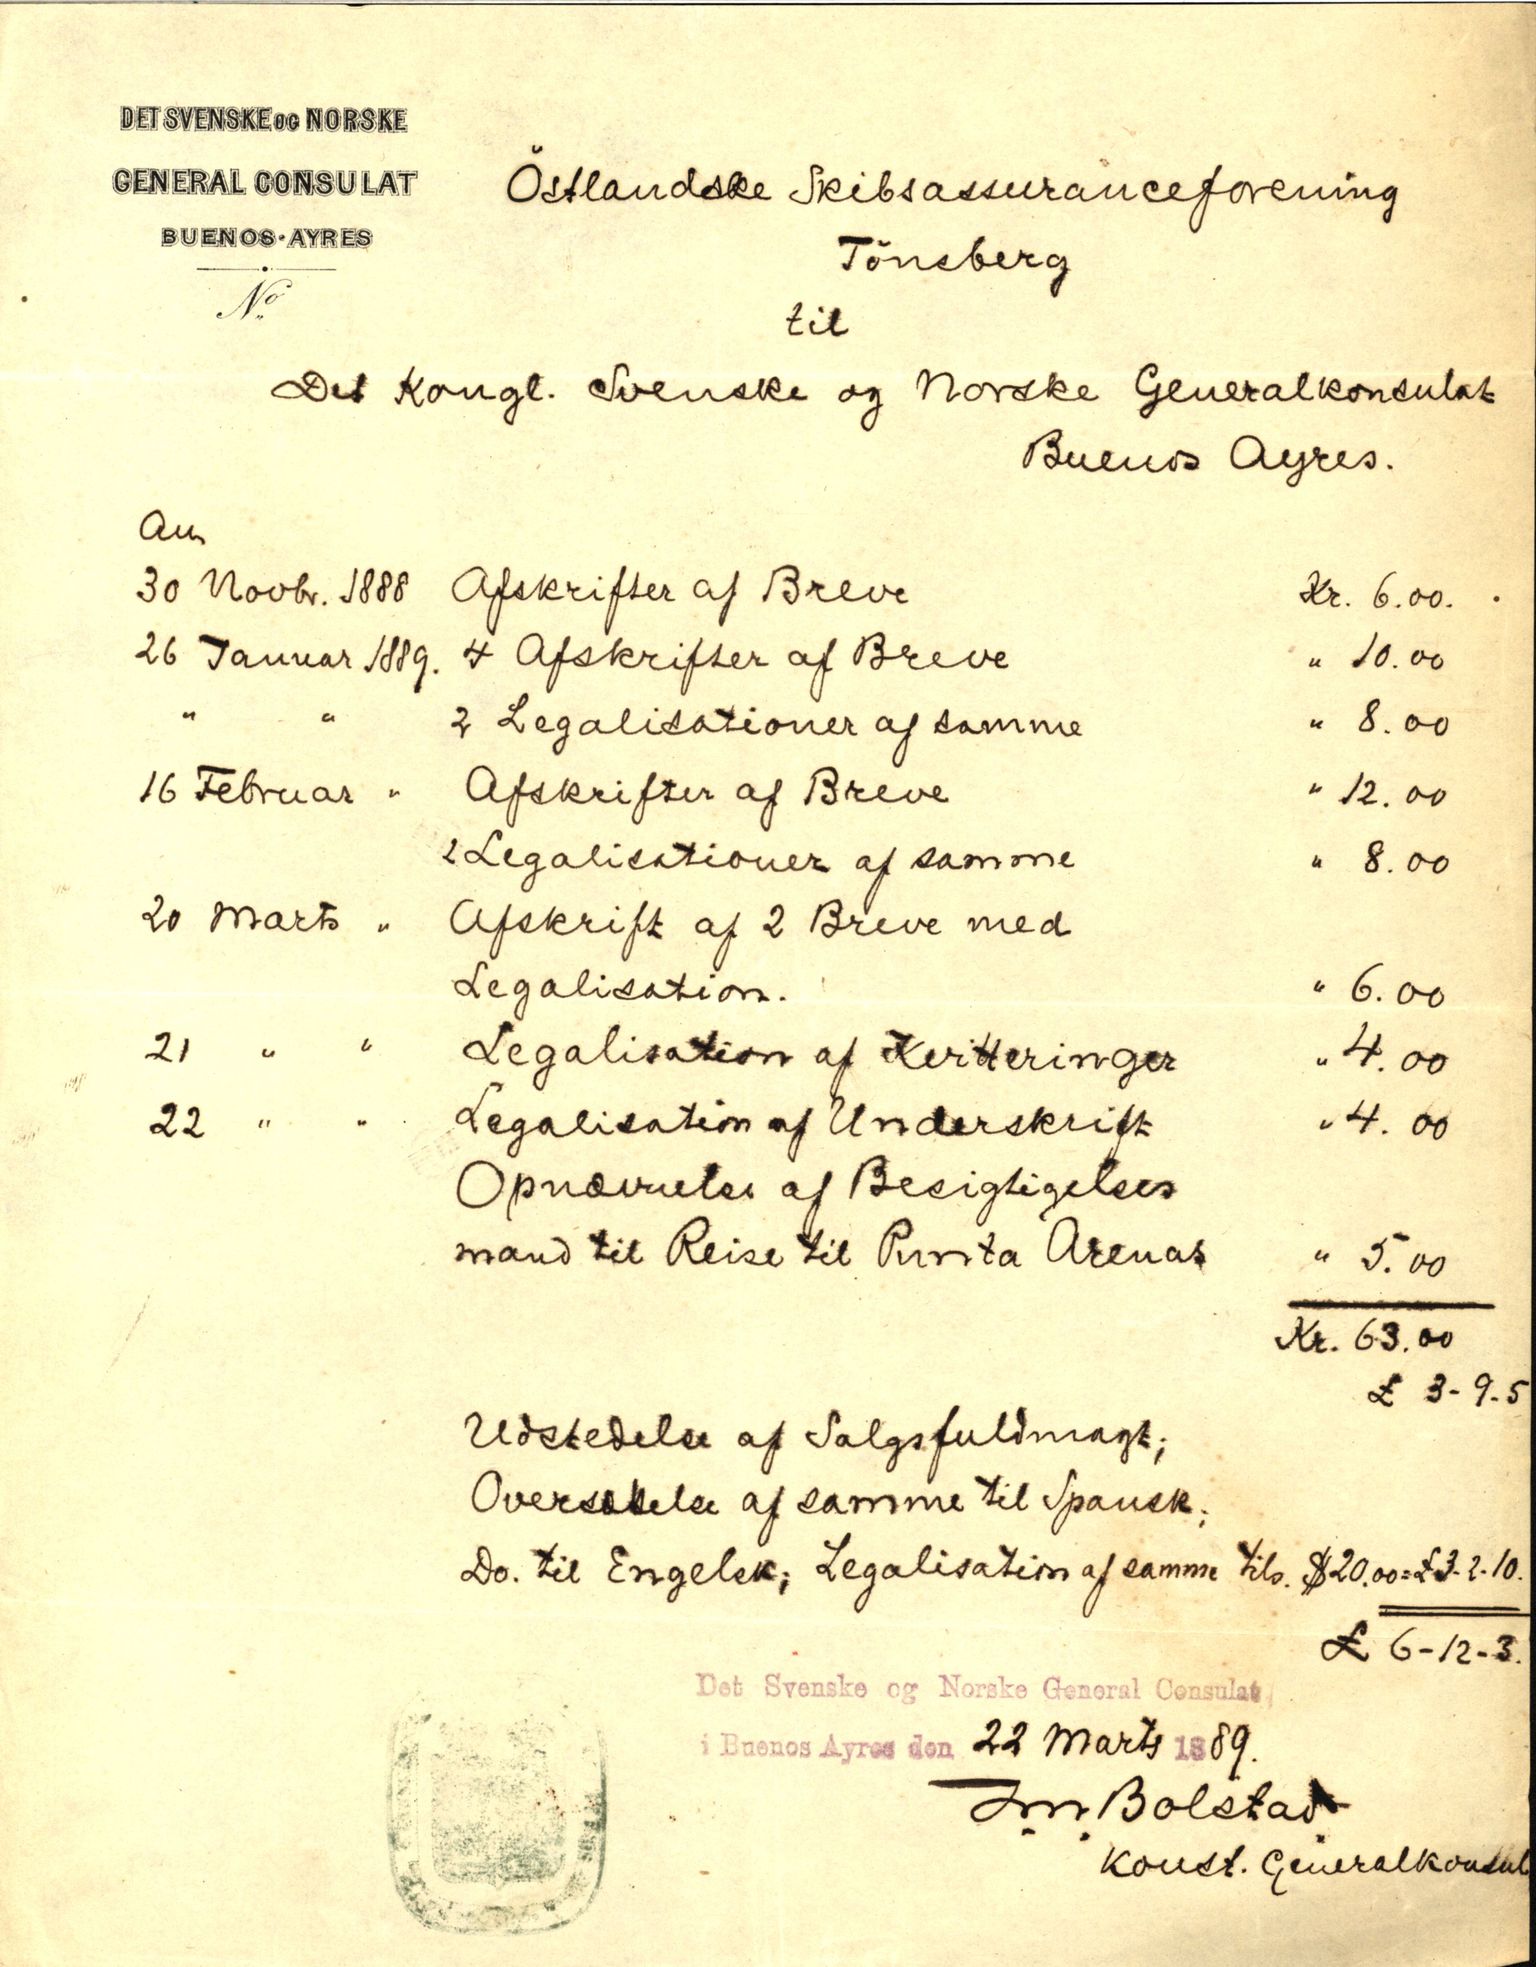 DET SVENSKE OG NORSKE
GENERAL CONSULAT
BUENOS-AYRES
No
Östlandske Skibsassuranceforening
Tönsberg
til
Det Kongl. Svenske og Norske Generalkonsulat
Buenos Ayres.
30 Novbr. 1888 Afskrifter af Breve Kr. 6.00.
26 Januar 1889. 4 Afskrifter af Breve " 10.00
" " 2 Legalisationer af samme " 8.00
16 Februar " Afskrifter af Breve " 12.00
2 Legalisationer af samme " 8.00
20 Marts " Afskrift af 2 Breve med
Legalisation. " 6.00
21 " " Legalisation af Kvitteringer " 4.00
22 " " Legalisation af Underskrift " 4.00
Opnævnelse af Besigtigelses
mand til Reise til Punta Arenas " 5.00
Kr. 63.00
£ 3-9.5
Udstedelse af Salgsfuldmagt;
Oversættelse af samme til Spansk;
Do. til Engelsk; Legalisation af samme tils. $20.00=£3-2-10.
£ 6-12-3.
Det Svenske og Norske General Consulat,
i Buenos Ayres den 22 Marts 1889.
Bolstad
Konst. Generalkonsul